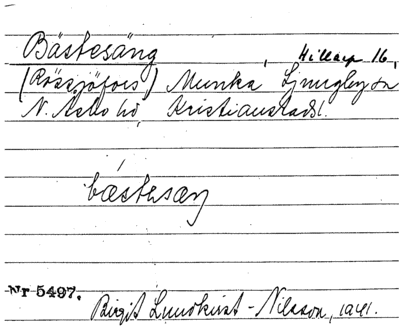 Bästesäng, Hillarp 16,
(Rössjöfors) Munka Ljungby sn
N. Åsbo hd, Kristianstads l.
bästesäŋ
Nr 5497. Birgit Lundkvist-Nilsson, 1941.